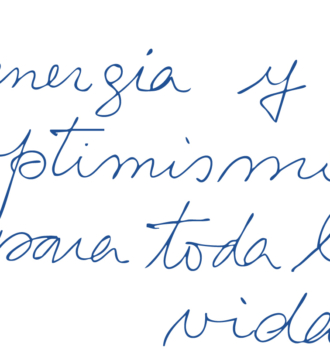 energia y
optimismo
para toda l
vida